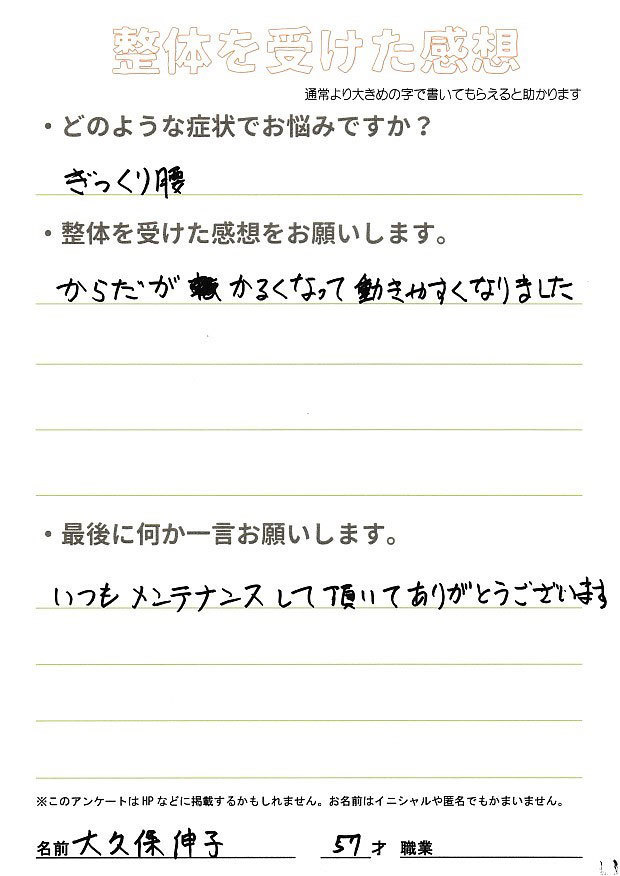 整体を受けた感想
通常より大きめの字で書いてもらえると助かります
・どのような症状でお悩みですか？
ぎっくり腰
・整体を受けた感想をお願いします。
からだが かるくなって動きやすくなりました
・最後に何か一言お願いします。
いつもメンテナンスして頂いてありがとうございます
※このアンケートはHPなどに掲載するかもしれません。お名前はイニシャルや匿名でもかまいません。
名前 大久保伸子 57才 職業